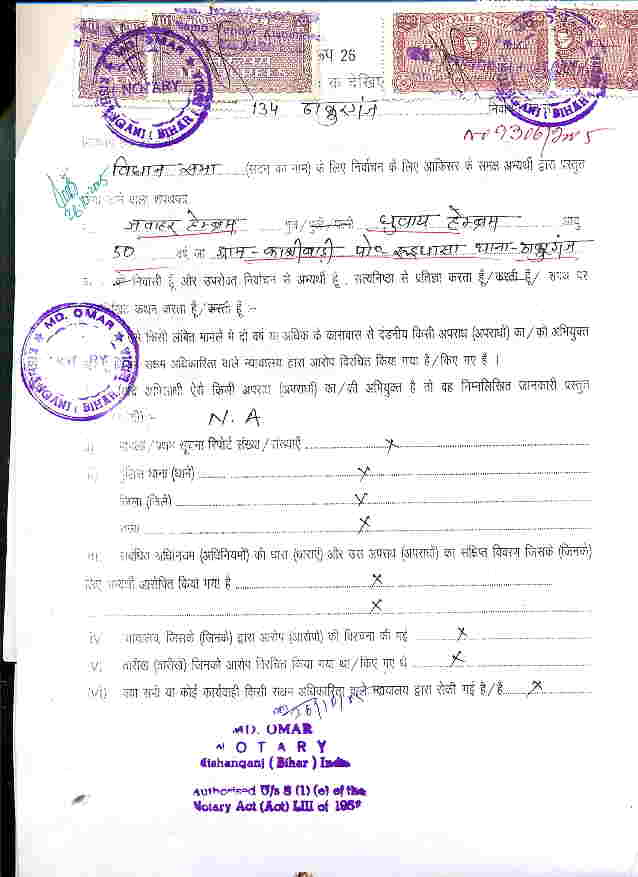 MD. OMAR
NOTARY
KISHANGANJ ( BIHAR )
प 26
134 ठाकुरगंज
No 9306/2005
विधान सभा (सदन का नाम) के लिए निर्वाचन के लिए आफिसर के समक्ष अभ्यर्थी द्वारा प्रस्तुत
वाला शपथपत्र
जवाहर हेम्ब्रम पुत्र/पुत्री/पत्नी धुवाय हेम्ब्रम आयु
50 वर्ष जो ग्राम-काशीबाड़ी पो०-रूइधासा थाना-ठाकुरगंज
निवासी हूँ और उपरोक्त निर्वाचन से अभ्यर्थी हूँ, सत्यनिष्ठा से प्रतिज्ञा करता हूँ/करती हूँ/ शपथ पर
कथन करता हूँ/करती हूँ :-
किसी लंबित मामले में दो वर्ष या अधिक के कारावास से दंडनीय किसी अपराध (अपराधों) का/की अभियुक्त
सक्षम अधिकारिता वाले न्यायालय द्वारा आरोप विरचित किया गया है/किए गए हैं ।
अभिसाक्षी ऐसे किसी अपराध (अपराधों) का/की अभियुक्त है तो वह निम्नलिखित जानकारी प्रस्तुत
:- N.A
MD. OMAR
KISHANGANJ ( BIHAR )
सूचना रिपोर्ट संख्या/संख्याएँ ✗
पुलिस थाना (थाने) ✗
जिला (जिले) ✗
✗
संबंधित अधिनियम (अधिनियमों) की धारा (धाराएँ) और उस अपराध (अपराधों) का संक्षिप्त विवरण जिसके (जिनके)
लिए अभ्यर्थी आरोपित किया गया है ✗
✗
iv) न्यायालय, जिसके (जिनके) द्वारा आरोप (आरोपों) की विरचना की गई ✗
v) तारीख (तारीखें) जिनको आरोप विरचित किया गया था/किए गए थे ✗
vi) क्या सभी या कोई कार्यवाही किसी सक्षम अधिकारिता वाले न्यायालय द्वारा रोकी गई है/हैं ✗
MD. OMAR
N O T A R Y
Kishanganj ( Bihar ) India
Authorised U/s 8 (1) (e) of the
Notary Act (Act) LIII of 1952